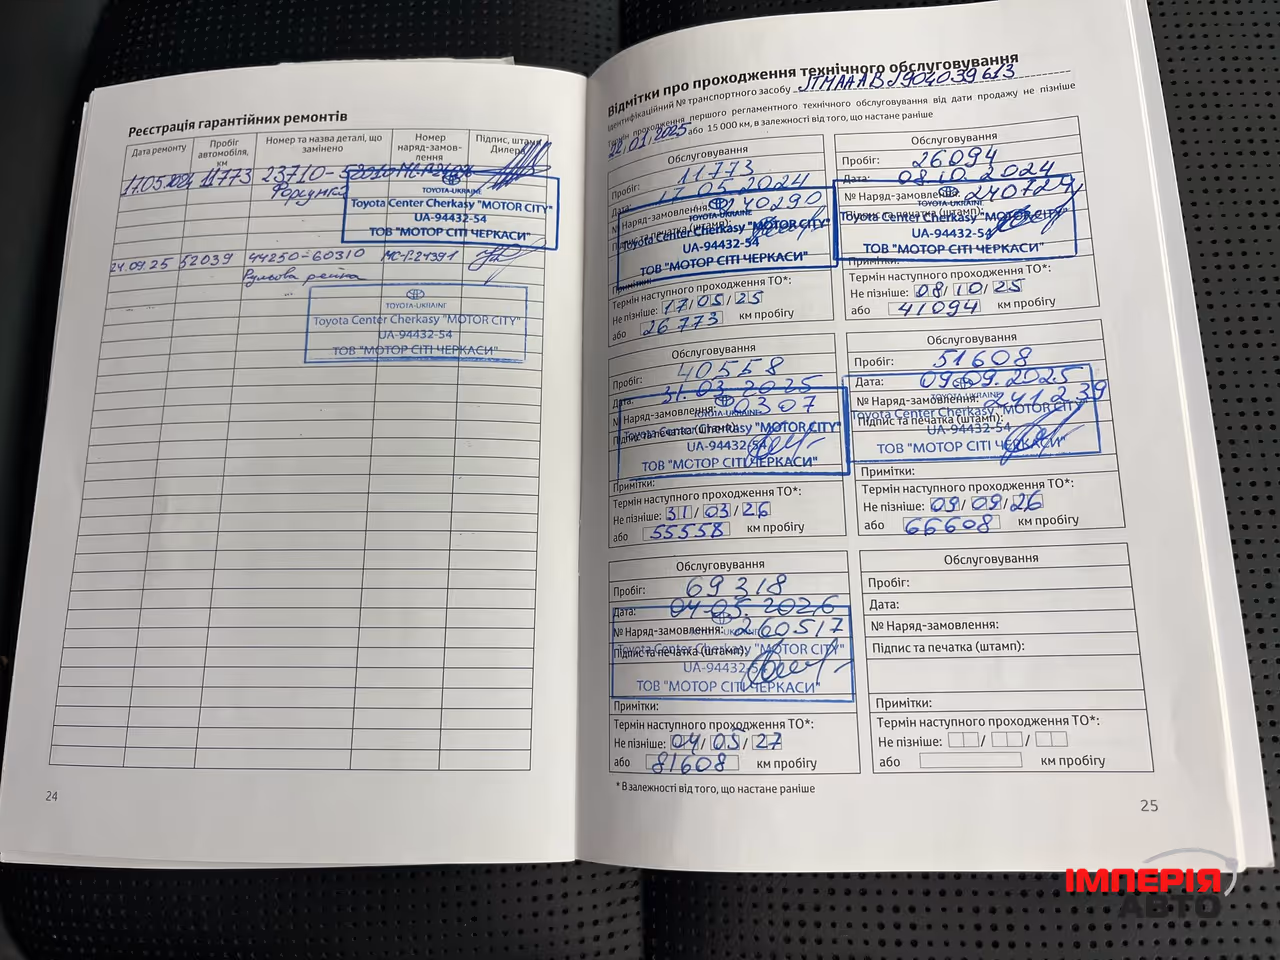 Реєстрація гарантійних ремонтів
Дата ремонту
Пробіг автомобіля, км
Номер та назва деталі, що замінено
Номер наряд-замов-лення
Підпис, штамп Дилера
17.05.2024 11773 23710-
Форсунка
TOYOTA-UKRAINE
Toyota Center Cherkasy "MOTOR CITY"
UA-94432-54
ТОВ "МОТОР СІТІ ЧЕРКАСИ"
24.09.25 52039 44250-60310
Рульова рейка
TOYOTA-UKRAINE
Toyota Center Cherkasy "MOTOR CITY"
UA-94432-54
ТОВ "МОТОР СІТІ ЧЕРКАСИ"
24
Відмітки про проходження технічного обслуговування
Ідентифікаційний № транспортного засобу
Термін проходження першого регламентного технічного обслуговування від дати продажу не пізніше
22.01.2025 або 15 000 км, в залежності від того, що настане раніше
Обслуговування
Пробіг: 11773
Дата: 17.05.2024
№ Наряд-замовлення: 240290
Підпис та печатка (штамп):
TOYOTA-UKRAINE
Toyota Center Cherkasy "MOTOR CITY"
UA-94432-54
ТОВ "МОТОР СІТІ ЧЕРКАСИ"
Примітки:
Термін наступного проходження ТО*:
Не пізніше: 17/05/25
або 26773 км пробігу
Обслуговування
Пробіг: 26094
Дата: 08.10.2024
№ Наряд-замовлення:
Підпис та печатка (штамп):
TOYOTA-UKRAINE
Toyota Center Cherkasy "MOTOR CITY"
UA-94432-54
ТОВ "МОТОР СІТІ ЧЕРКАСИ"
Примітки:
Термін наступного проходження ТО*:
Не пізніше: 08/10/25
або 41094 км пробігу
Обслуговування
Пробіг: 40558
Дата: 31.03.2025
№ Наряд-замовлення:
Підпис та печатка (штамп):
TOYOTA-UKRAINE
Toyota Center Cherkasy "MOTOR CITY"
UA-94432-54
ТОВ "МОТОР СІТІ ЧЕРКАСИ"
Примітки:
Термін наступного проходження ТО*:
Не пізніше: 31/03/26
або 55558 км пробігу
Обслуговування
Пробіг: 51608
Дата: 09.09.2025
№ Наряд-замовлення: 241239
Підпис та печатка (штамп):
TOYOTA-UKRAINE
Toyota Center Cherkasy "MOTOR CITY"
UA-94432-54
ТОВ "МОТОР СІТІ ЧЕРКАСИ"
Примітки:
Термін наступного проходження ТО*:
Не пізніше: 09/09/26
або 66608 км пробігу
Обслуговування
Пробіг: 69318
Дата: 04.05.2026
№ Наряд-замовлення: 260517
Підпис та печатка (штамп):
TOYOTA-UKRAINE
Toyota Center Cherkasy "MOTOR CITY"
UA-94432-54
ТОВ "МОТОР СІТІ ЧЕРКАСИ"
Примітки:
Термін наступного проходження ТО*:
Не пізніше: 04/05/27
або 81608 км пробігу
Обслуговування
Пробіг:
Дата:
№ Наряд-замовлення:
Підпис та печатка (штамп):
Примітки:
Термін наступного проходження ТО*:
Не пізніше: / /
або км пробігу
* В залежності від того, що настане раніше
25
ІМПЕРІЯ
АВТО